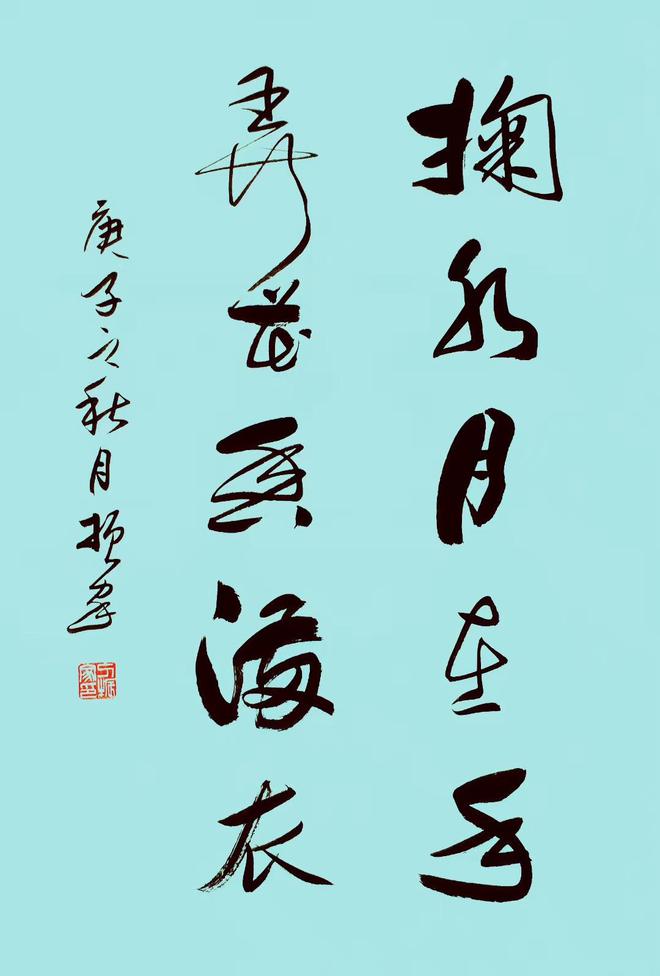 掬水月在手
弄花香满衣
庚子之秋月振家